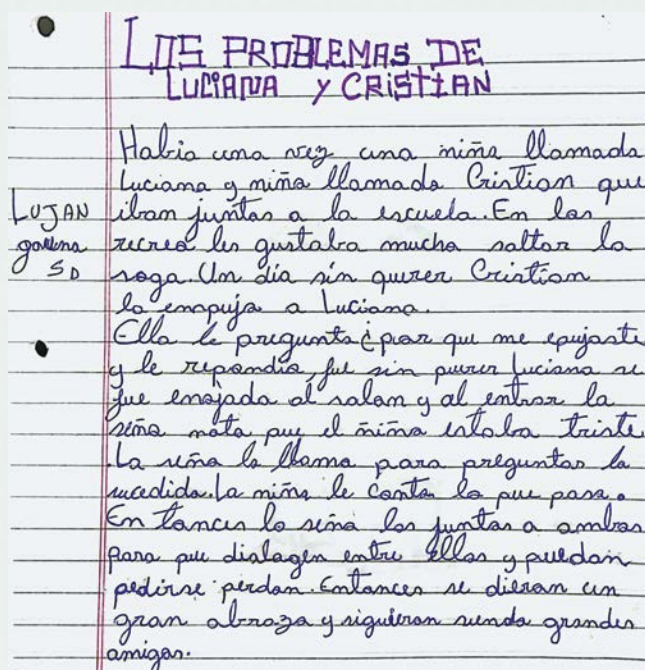 LOS PROBLEMAS DE
LUCIANA Y CRISTIAN
Habia una vez una niña llamada
Luciana y niño llamado Cristian que
LUJAN
iban juntos a la escuela. En los
5D
recreo les gustaba mucho saltar la
soga. Un día sin querer Cristian
lo empuja a Luciana.
Ella le pregunta ¿por que me epujaste
y le repondio, fue sin querer Luciana se
fue enojada al salon y al entrar la
seño nota que el niña estaba triste
.La seño la llama para preguntar lo
sucedido. La niña le conta lo que paso.
En tonces la seño los juntos a ambos
para que dialagen entre ellos y puedan
pedirse perdon. Entonces se dieron un
gran abrazo y siguieron siendo grandes
amigos.